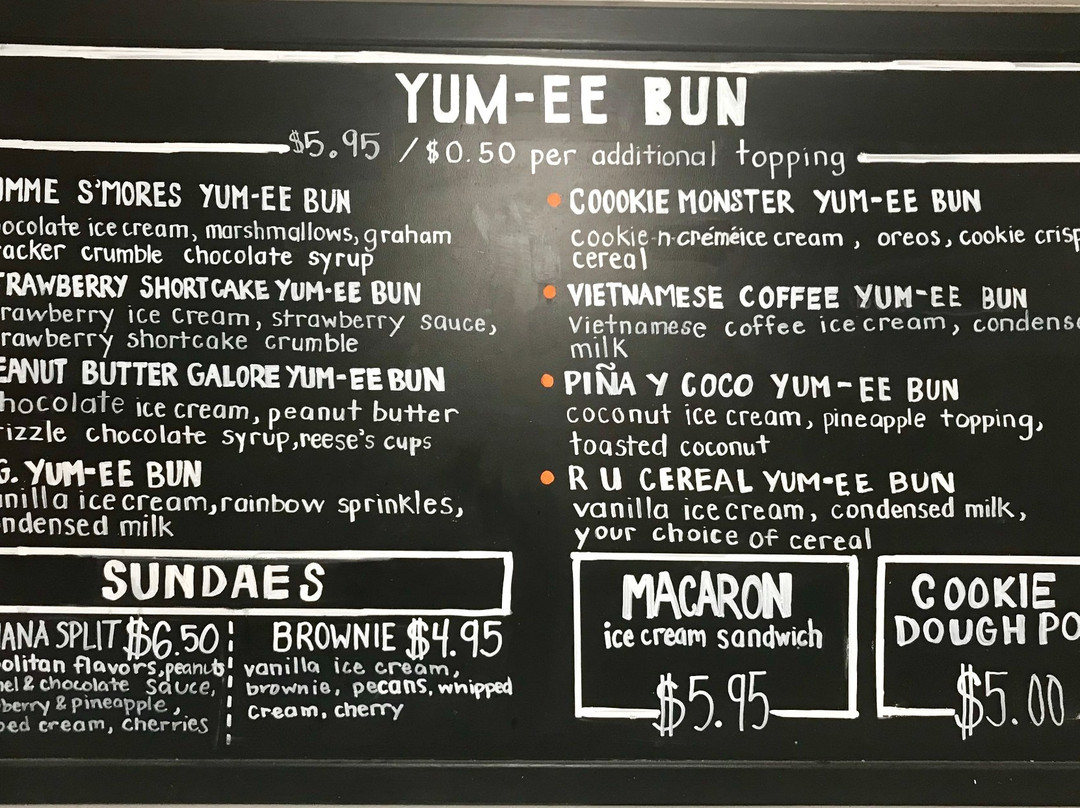 YUM-EE BUN
$5.95 / $0.50 per additional topping
IMME S'MORES YUM-EE BUN
ocolate ice cream, marshmallows, graham
acker crumble chocolate syrup
TRAWBERRY SHORTCAKE YUM-EE BUN
rawberry ice cream, strawberry sauce,
rawberry shortcake crumble
EANUT BUTTER GALORE YUM-EE BUN
hocolate ice cream, peanut butter
rizzle chocolate syrup, reese's cups
G. YUM-EE BUN
nilla ice cream, rainbow sprinkles,
ndensed milk
COOOKIE MONSTER YUM-EE BUN
cookie-n-créméice cream, oreos, cookie crisp
cereal
VIETNAMESE COFFEE YUM-EE BUN
Vietnamese coffee ice cream, condense
milk
PIÑA Y COCO YUM-EE BUN
coconut ice cream, pineapple topping,
toasted coconut
R U CEREAL YUM-EE BUN
vanilla ice cream, condensed milk,
your choice of cereal
SUNDAES
ANA SPLIT $6.50
olitan flavors, peanuts
mel & chocolate sauce,
berry & pineapple,
ped cream, cherries
BROWNIE $4.95
vanilla ice cream,
brownie, pecans, whipped
cream, cherry
MACARON
ice cream sandwich
$5.95
COOKIE
DOUGH PO
$5.00